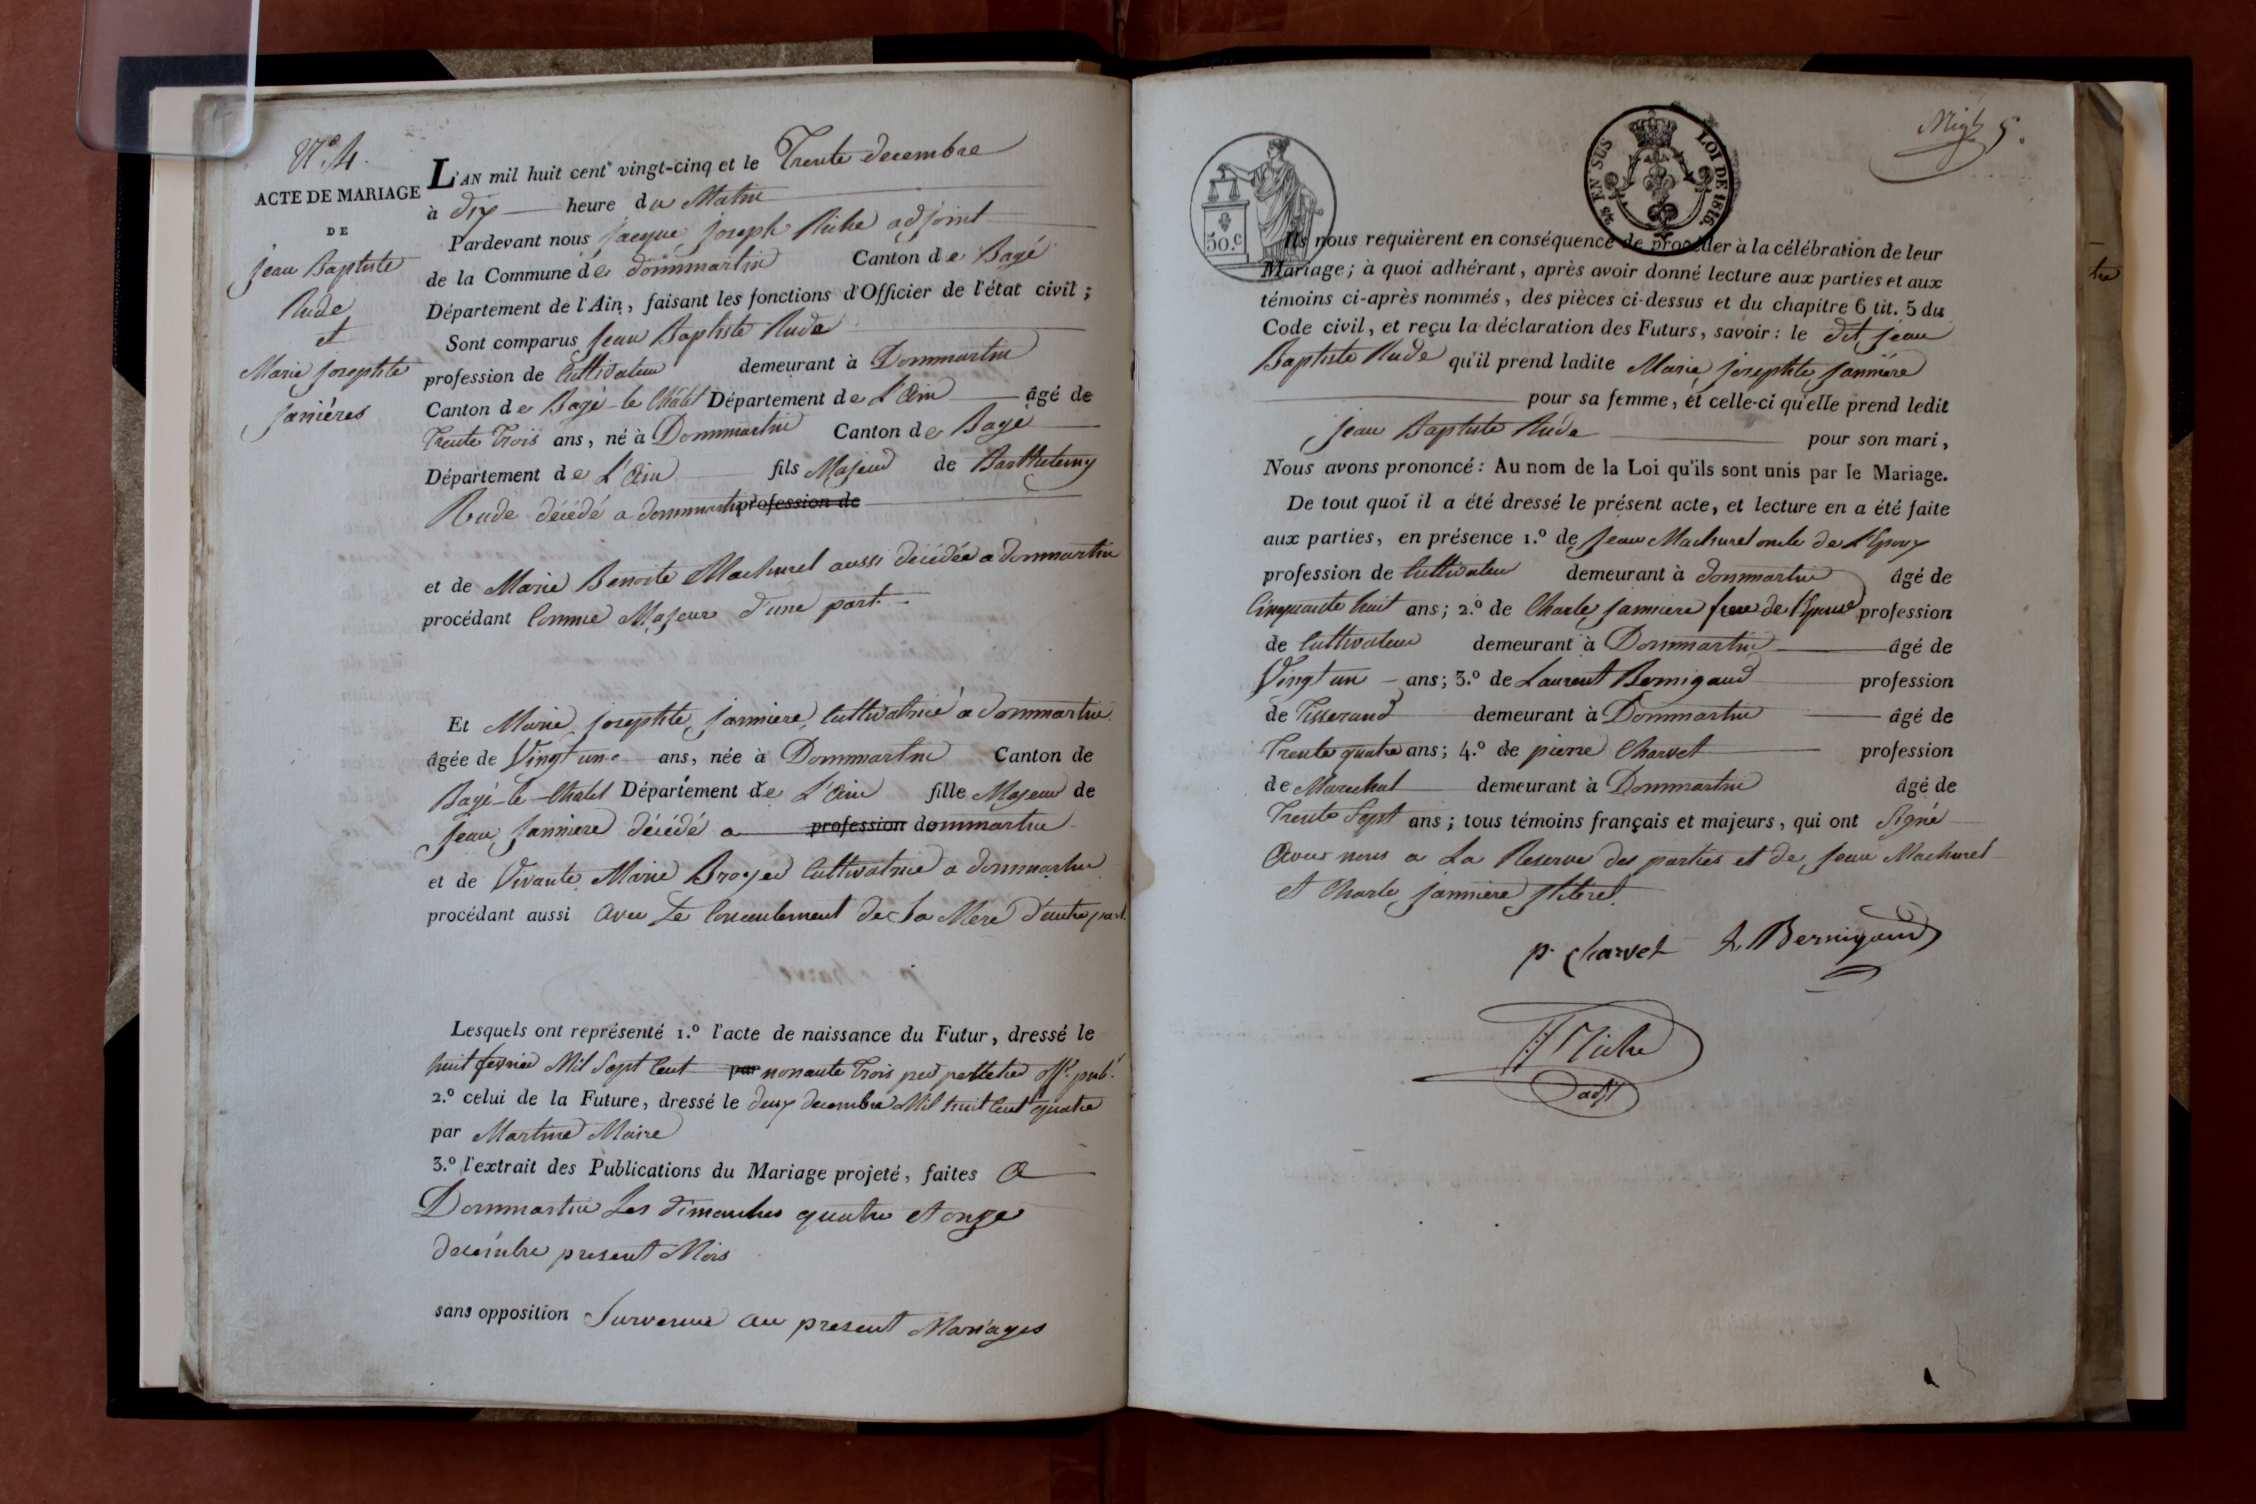 N.° 4.
ACTE DE MARIAGE
DE
Jean Baptiste
Rude
et
Marie Josephte
Janières
L'AN mil huit cent vingt-cinq et le Trente decembre
à dix heure du Matin
Pardevant nous Jacque Joseph Riche adjoint
de la Commune de dommartin Canton de Bagé
Département de l'Ain, faisant les fonctions d'Officier de l'état civil ;
Sont comparus Jean Baptiste Rude
profession de Cultivateur demeurant à Dommartin
Canton de Bagé-le Châtel Département de L'Ain âgé de
Trente Trois ans, né à Dommartin Canton de Bagé
Département de L'Ain fils Majeur de Barthelemy
Rude décédé a dommartin profession de
et de Marie Benoite Machurel aussi décédée a dommartin
procédant Comme Majeur d'une part.
Et Marie Josephte Janniere Cultivatrice a dommartin
âgée de Vingt une ans, née à Dommartin Canton de
Bagé-le-Chatel Département de L'Ain fille Majeur de
Jean Janniere décédé a profession dommartin
et de Vivante Marie Broyer Cultivatrice a dommartin
procédant aussi avec Le Concentement de La Mere d'autre part.
Lesquels ont représenté 1.° l'acte de naissance du Futur, dressé le
huit fevrier Mil Sept Cent par nonante Trois par off. pub.
2.° celui de la Future, dressé le deux decembre Mil huit Cent quatre
par Martine Maire
3.° l'extrait des Publications du Mariage projeté, faites a
Dommartin Les dimanches quatre et onze
decembre present Mois
sans opposition Survenue au present Mariages
5.
50.c
25 EN SUS
LOI DE 1816.
Ils nous requièrent en conséquence de procéder à la célébration de leur
Mariage ; à quoi adhérant, après avoir donné lecture aux parties et aux
témoins ci-après nommés, des pièces ci-dessus et du chapitre 6 tit. 5 du
Code civil, et reçu la déclaration des Futurs, savoir : le dit Jean
Baptiste Rude qu'il prend ladite Marie Josephte Janniere
pour sa femme, et celle-ci qu'elle prend ledit
Jean Baptiste Rude pour son mari,
Nous avons prononcé : Au nom de la Loi qu'ils sont unis par le Mariage.
De tout quoi il a été dressé le présent acte, et lecture en a été faite
aux parties, en présence 1.° de Jean Machurel oncle de L'Epoux
profession de Cultivateur demeurant à dommartin âgé de
Cinquante huit ans ; 2.° de Charle Janniere frere de l'Epouse profession
de Cultivateur demeurant à Dommartin âgé de
Vingt un ans ; 3.° de Laurent Bernigaud profession
de Tisserand demeurant à Dommartin âgé de
Trente quatre ans ; 4.° de pierre Charvet profession
de Marechal demeurant à Dommartin âgé de
Trente Sept ans ; tous témoins français et majeurs, qui ont Signé
Avec nous a La Reserve des parties et de Jean Machurel
et Charle Janniere
p. Charvet L. Bernigaud
Riche
adjt